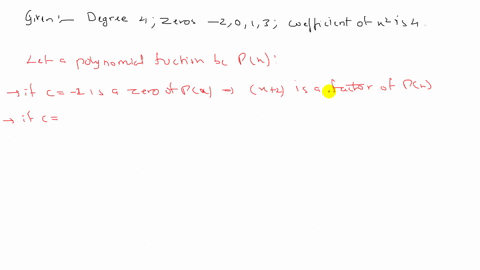 Given:- Degree 4; zeros -2, 0, 1, 3; coefficient of x² is 4.
Let a polynomial fuction be P(x):
→ if c = -2 is a zero of P(x) ⇒ (x+2) is a factor of P(x)
→ if c =